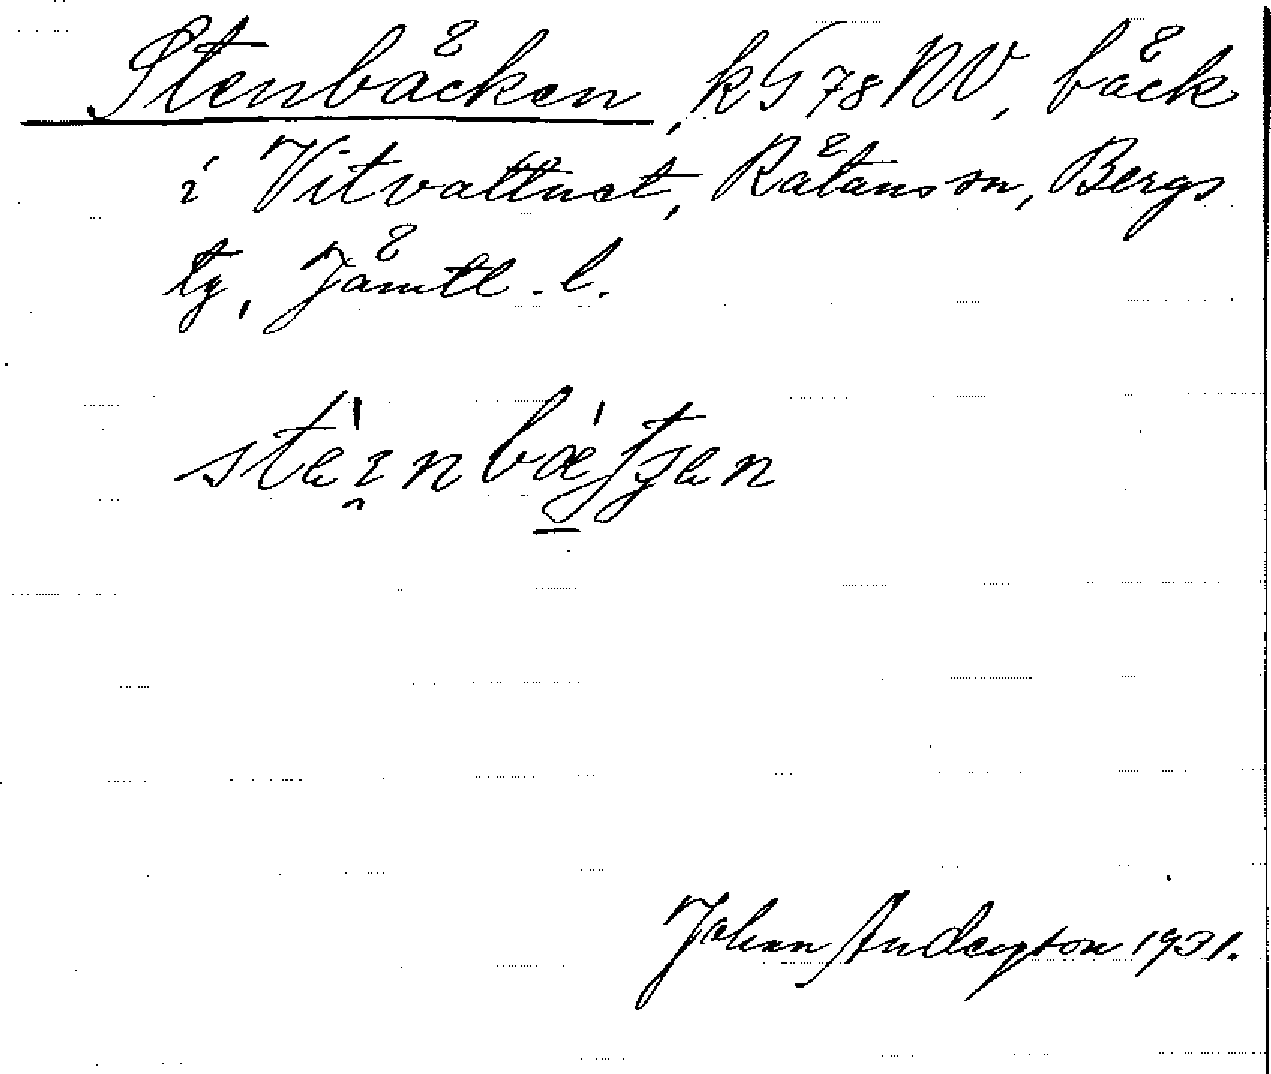 Stenbäcken, kG 78 NV, bäck
i Vitvattnet, Rätans sn, Bergs
tg, Jämtl. l.
John Anderson 1931.